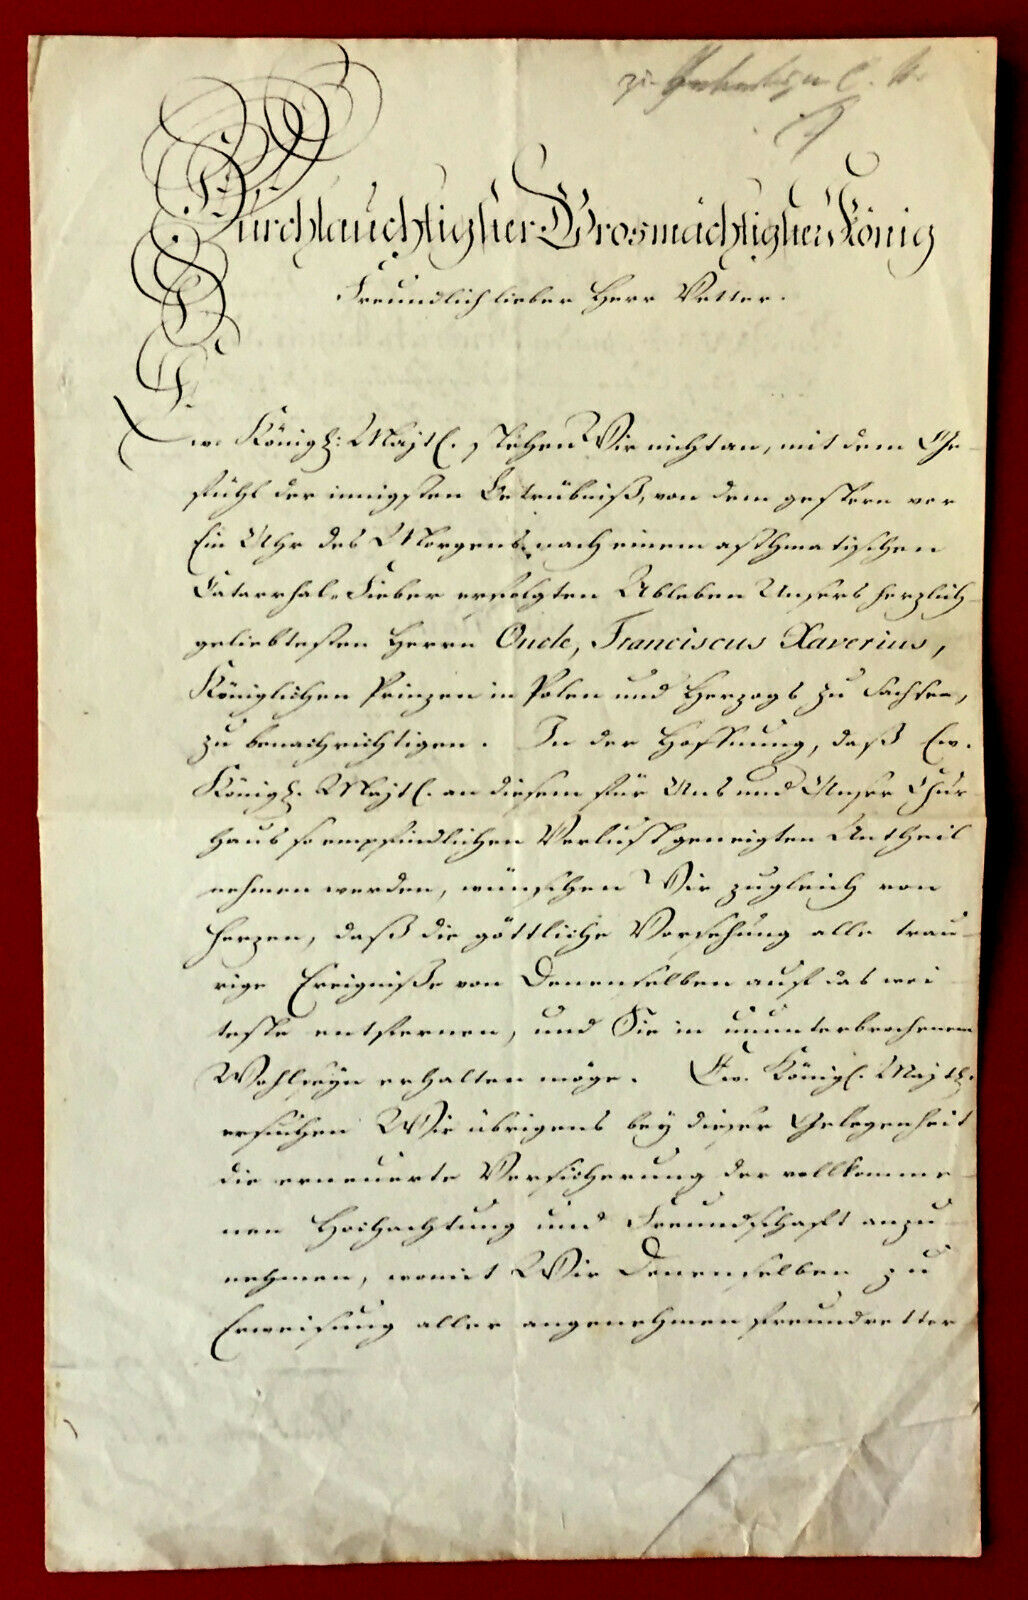 Durchlauchtigster Grosmächtigster König
Freundlich lieber Herr Vetter.
Ew. Königl: Majt. stehen Wir nicht an, mit dem Ge-
fühl der innigsten Betrübniß, von dem gestern vor
Ein Uhr des Morgens nach einem asthmatischen
Catarrhal-Fieber erfolgten Ableben Unsers herzlich
geliebtesten Herrn Oncle, Franciscus Xaverius,
Königlichen Prinzen in Polen und Herzogs zu Sachsen,
zu benachrichtigen. In der Hoffnung, daß Ew.
Königl. Majt. an diesem für Uns und Unser Chur-
haus so empfindlichen Verlust geneigten Antheil
nehmen werden, wünschen Wir zugleich von
Herzen, daß die göttliche Vorsehung alle trau-
rige Ereigniße von Denenselben auf das wei-
teste entfernen, und Sie in ununterbrochenem
Wohlseyn erhalten möge. Ew. Königl. Majt.
ersuchen Wir übrigens bey dieser Gelegenheit
die erneuerte Versicherung der vollkomme-
nen Hochachtung und Freundschaft anzu-
nehmen, womit Wir Denenselben zu
Erweisung aller angenehmen freundvetter